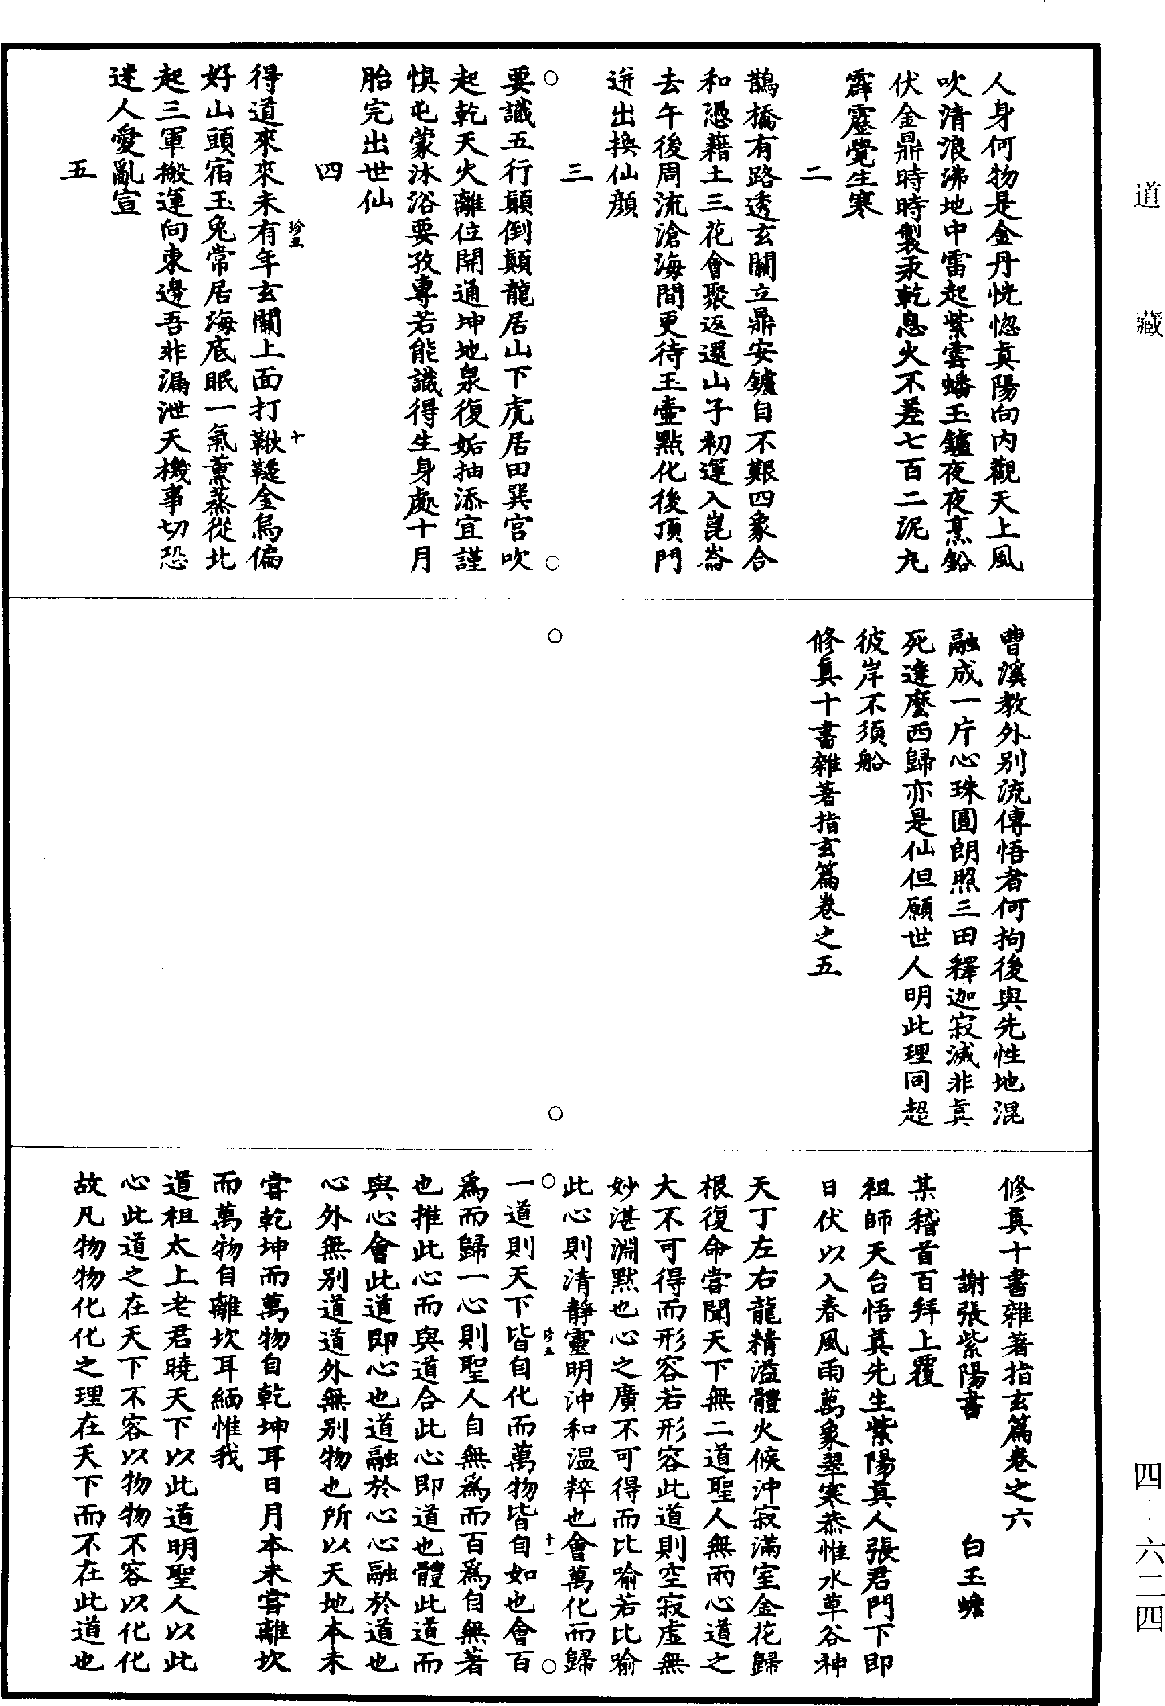 道藏
人身何物是金丹恍惚真陽向內觀天上風
吹清浪沸地中雷起紫雲蟠玉鑪夜夜烹鉛
伏金鼎時時製汞乾息火不差七百二泥丸
霹靂覺生寒
二
鵲橋有路透玄關立鼎安鑪自不艱四象合
和憑藉土三花會聚返還山子初運入崑崙
去午後周流滄海間更待玉壺點化後頂門
迸出換仙顏
三
要識五行顛倒顛龍居山下虎居田巽宮吹
起乾天火離位開通坤地泉復姤抽添宜謹
慎屯蒙沐浴要孜專若能識得生身處十月
胎完出世仙
四
得道來來未有年玄關上面打鞦韆金烏偏
珍五
十
好山頭宿玉兔常居海底眠一氣薰蒸從北
起三軍搬運向東邊吾非漏泄天機事切恐
迷人愛亂宣
五
曹溪教外別流傳悟者何拘後與先性地混
融成一片心珠圓朗照三田釋迦寂滅非真
死達麼西歸亦是仙但願世人明此理同超
彼岸不須船
修真十書雜著指玄篇卷之五
修真十書雜著指玄篇卷之六
謝張紫陽書 白玉蟾
某稽首百拜上覆
祖師天台悟真先生紫陽真人張君門下即
日伏以入春風雨萬象翠寒恭惟水草谷神
天丁左右龍精溢體火候沖寂滿室金花歸
根復命嘗聞天下無二道聖人無兩心道之
大不可得而形容若形容此道則空寂虛無
妙湛淵默也心之廣不可得而比喻若比喻
此心則清靜靈明沖和溫粹也會萬化而歸
一道則天下皆自化而萬物皆自如也會百
珍五
十一
為而歸一心則聖人自無為而百為自無著
也推此心而與道合此心即道也體此道而
與心會此道即心也道融於心心融於道也
心外無別道道外無別物也所以天地本未
嘗乾坤而萬物自乾坤耳日月本未嘗離坎
而萬物自離坎耳緬惟我
道祖太上老君曉天下以此道明聖人以此
心此道之在天下不容以物物不容以化化
故凡物物化化之理在天下而不在此道也
四·六二四